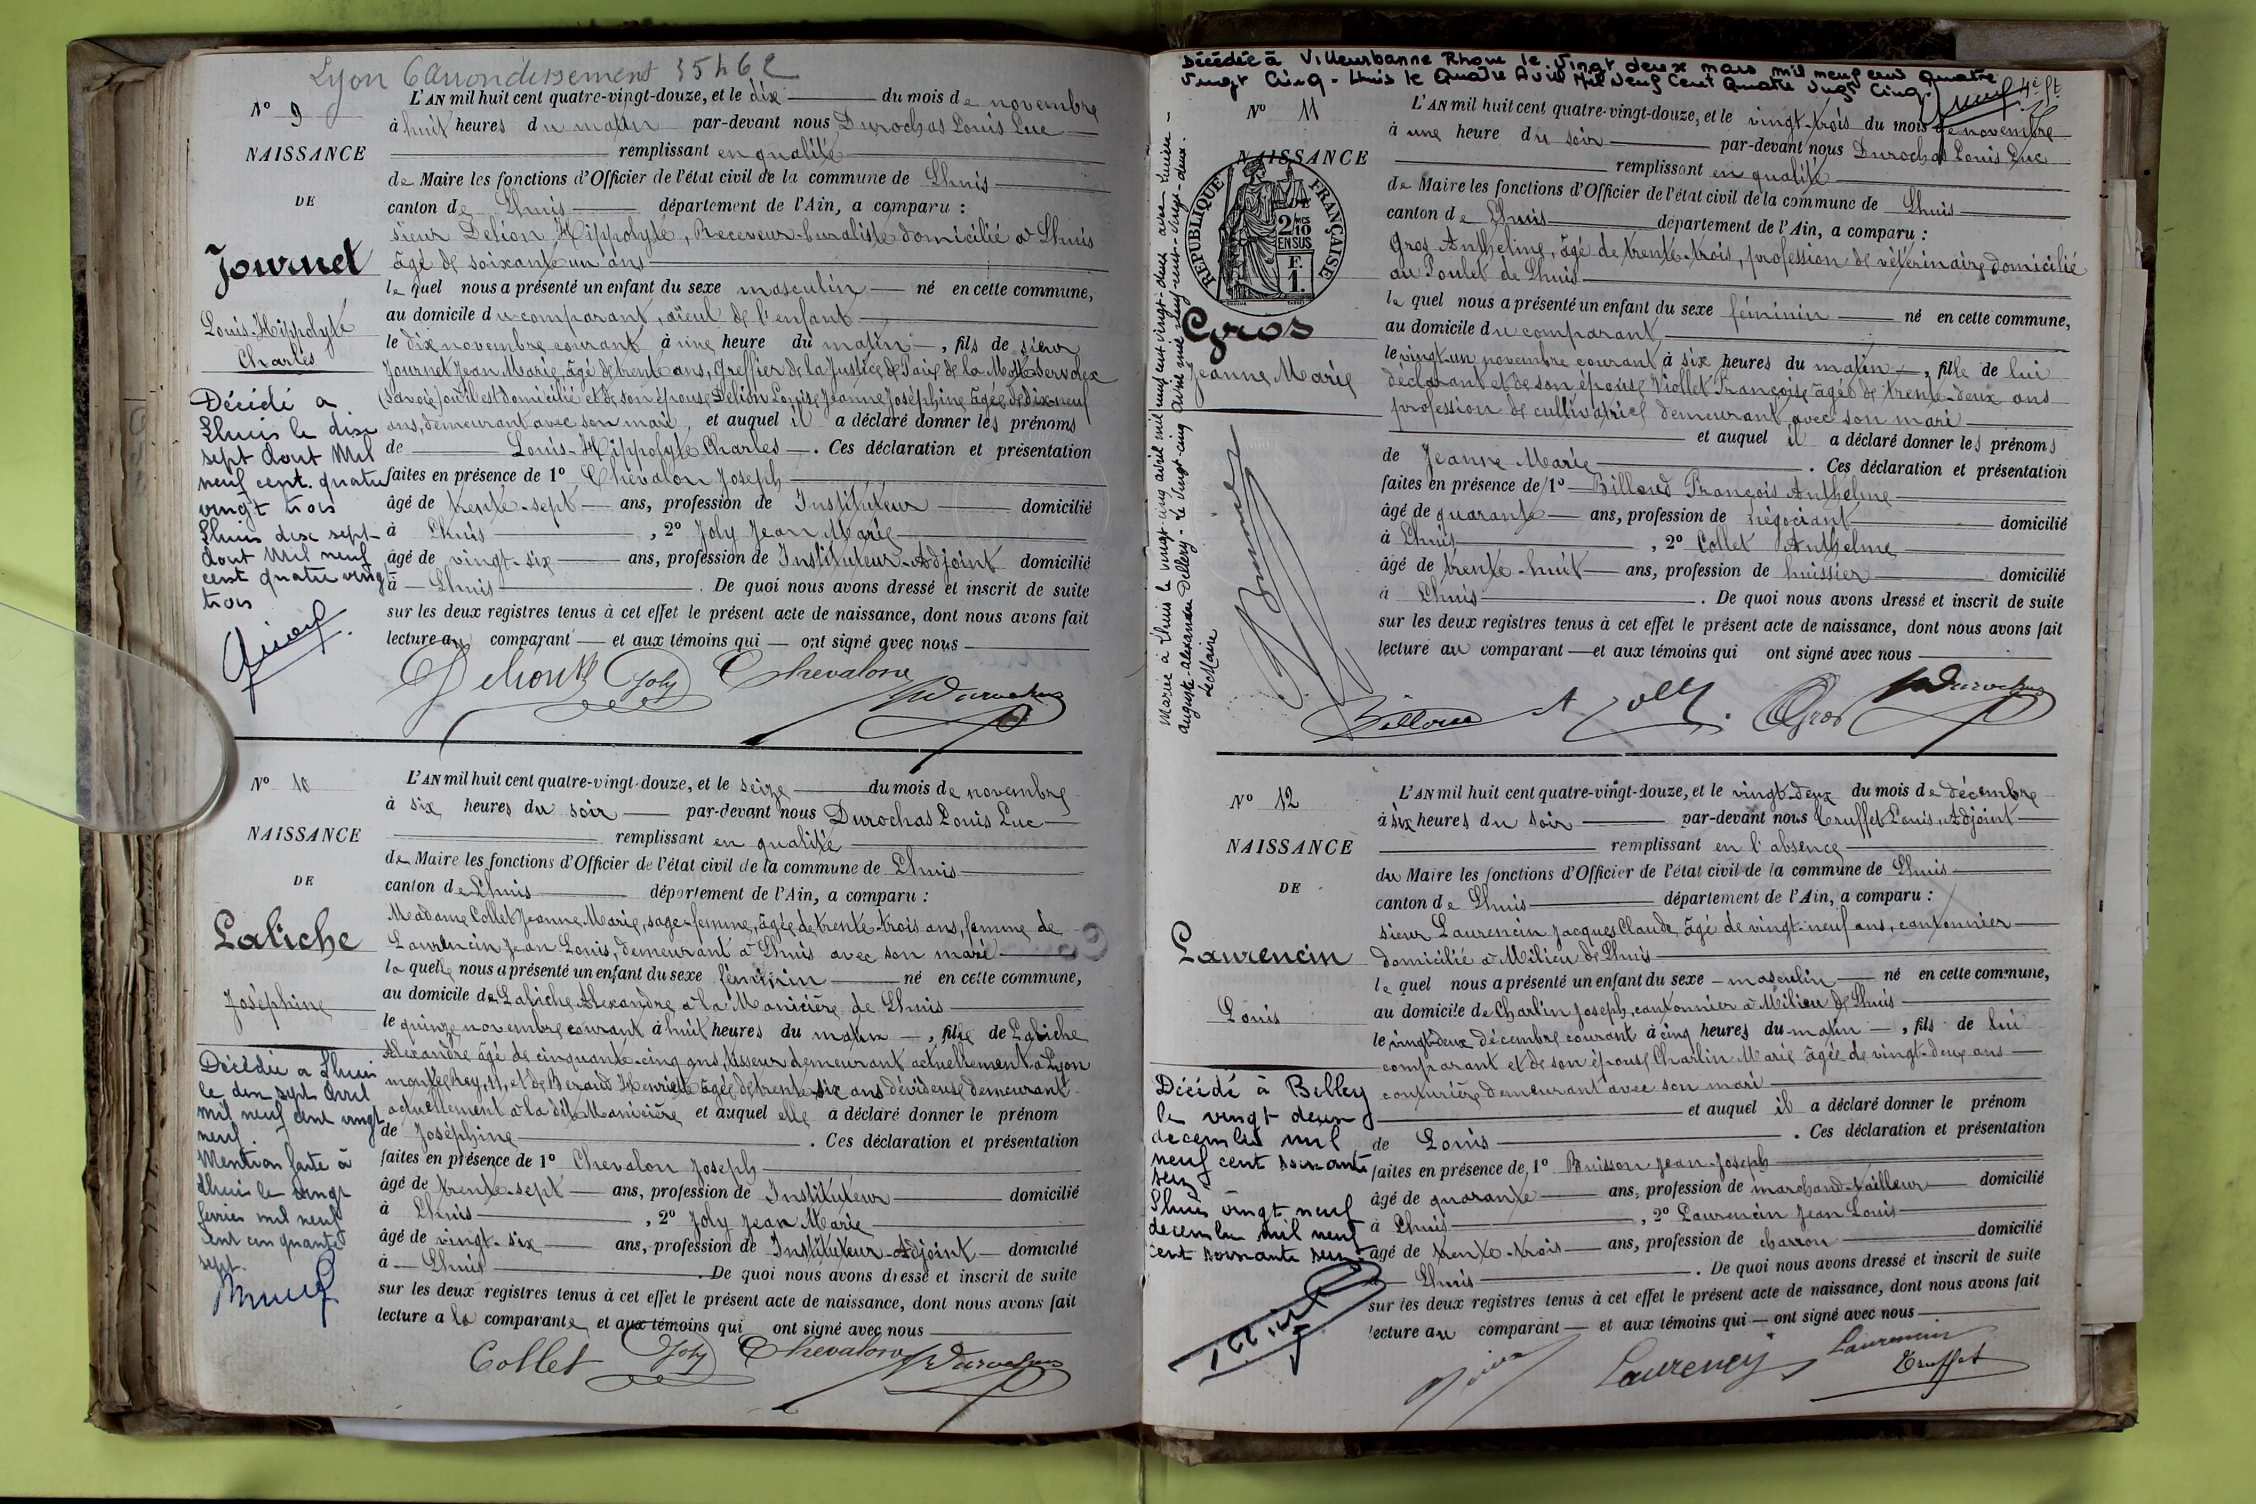 Lyon 6 Arrondissement 35462
N° 9
NAISSANCE
DE
Journet
Louis-Hippolyte
Charles
Décédé a
Lhuis le dix
sept Aout Mil
neuf cent quatre
vingt trois
Lhuis dix sept
Aout Mil neuf
cent quatre vingt
trois
L'AN mil huit cent quatre-vingt-douze, et le dix du mois de novembre
à huit heures du matin par-devant nous Durochas Louis Luc
remplissant en qualité
de Maire les fonctions d'Officier de l'état civil de la commune de Lhuis
canton de Lhuis département de l'Ain, a comparu :
sieur Delion Hippolyte, Receveur-buraliste domicilié à Lhuis
âgé de soixante un ans
le quel nous a présenté un enfant du sexe masculin né en cette commune,
au domicile du comparant, aïeul de l'enfant
le dix novembre courant à une heure du matin, fils de sieur
Journet Jean Marie, âgé de trente ans, Greffier de la Justice de Paix de la Motte Servolex
(Savoie) où il est domicilié et de son épouse Delion Louise Jeanne Joséphine âgée de dix neuf
ans, demeurant avec son mari, et auquel il a déclaré donner les prénoms
de Louis-Hippolyte Charles. Ces déclaration et présentation
faites en présence de 1° Chevalon Joseph
âgé de trente-sept ans, profession de Instituteur domicilié
à Lhuis, 2° Joly Jean Marie
âgé de vingt-six ans, profession de Instituteur-Adjoint domicilié
à Lhuis. De quoi nous avons dressé et inscrit de suite
sur les deux registres tenus à cet effet le présent acte de naissance, dont nous avons fait
lecture au comparant et aux témoins qui ont signé avec nous
Delion H Joly Chevalon Durochas
N° 10
NAISSANCE
DE
Labiche
Joséphine
Décédée a Lhuis
le dix sept Avril
mil neuf cent vingt
neuf.
Mention faite à
Lhuis le vingt
fevrier mil neuf
cent cinquante
sept.
L'AN mil huit cent quatre-vingt-douze, et le seize du mois de novembre
à six heures du soir par-devant nous Durochas Louis Luc
remplissant en qualité
de Maire les fonctions d'Officier de l'état civil de la commune de Lhuis
canton de Lhuis département de l'Ain, a comparu :
Madame Collet Jeanne Marie, sage-femme, âgée de trente-trois ans, femme de
Laurencin Jean Louis, demeurant à Lhuis avec son mari
la quelle nous a présenté un enfant du sexe féminin né en cette commune,
au domicile de Labiche Alexandre à la Manicière de Lhuis
le quinze novembre courant à huit heures du matin, fille de Labiche
Alexandre âgé de cinquante-cinq ans, tisseur demeurant actuellement à Lyon
11, et de Beraud Henriette âgée de trente-six ans dévideuse demeurant
actuellement à la dite Manicière et auquel elle a déclaré donner le prénom
de Joséphine. Ces déclaration et présentation
faites en présence de 1° Chevalon Joseph
âgé de trente-sept ans, profession de Instituteur domicilié
à Lhuis, 2° Joly Jean Marie
âgé de vingt-six ans, profession de Instituteur-Adjoint domicilié
à Lhuis. De quoi nous avons dressé et inscrit de suite
sur les deux registres tenus à cet effet le présent acte de naissance, dont nous avons fait
lecture a la comparante, et aux témoins qui ont signé avec nous
Collet Joly Chevalon Durochas
Décédée à Villeurbanne Rhone le vingt deux mars mil neuf cent quatre
vingt Cinq - Lhuis le Quatre Avril Mil Neuf Cent Quatre Vingt Cinq.
N° 11
NAISSANCE
RÉPUBLIQUE FRANÇAISE
2 DCES 10 EN SUS
F. 1.
Gros
Jeanne Marie
Mariée à Lhuis le vingt-cinq avril mil neuf cent vingt-deux avec
Auguste-Alexandre Dellery - Le vingt-cinq Avril mil neuf-cent-vingt-deux.
Le Maire
L'AN mil huit cent quatre-vingt-douze, et le vingt-trois du mois de novembre
à une heure du soir par-devant nous Durochas Louis Luc
remplissant en qualité
de Maire les fonctions d'Officier de l'état civil de la commune de Lhuis
canton de Lhuis département de l'Ain, a comparu :
Gros Anthelme, âgé de trente-trois, profession de vétérinaire domicilié
au Poulet de Lhuis
le quel nous a présenté un enfant du sexe féminin né en cette commune,
au domicile du comparant
le vingt-un novembre courant à six heures du matin, fille de lui
déclarant et de son épouse Viollet Françoise âgée de trente-deux ans
profession de cultivatrice demeurant avec son mari
et auquel il a déclaré donner les prénoms
de Jeanne Marie. Ces déclaration et présentation
faites en présence de 1° Billoud François Anthelme
âgé de quarante ans, profession de négociant domicilié
à Lhuis, 2° Collet Anthelme
âgé de trente-huit ans, profession de huissier domicilié
à Lhuis. De quoi nous avons dressé et inscrit de suite
sur les deux registres tenus à cet effet le présent acte de naissance, dont nous avons fait
lecture au comparant et aux témoins qui ont signé avec nous
Billoud Gros Durochas
N° 12
NAISSANCE
DE
Laurencin
Louis
Décédé à Belley
le vingt deux
decembre mil
neuf cent soixante
seize
Lhuis vingt neuf
decembre mil neuf
cent soixante seize
L'AN mil huit cent quatre-vingt-douze, et le vingt-deux du mois de décembre
à six heures du soir par-devant nous Truffet Louis, Adjoint
remplissant en l'absence
du Maire les fonctions d'Officier de l'état civil de la commune de Lhuis
canton de Lhuis département de l'Ain, a comparu :
sieur Laurencin Jacques Claude, âgé de vingt-neuf ans, cantonnier
domicilié à Milieu de Lhuis
le quel nous a présenté un enfant du sexe masculin né en cette commune,
au domicile de Charlin Joseph, cantonnier à Milieu de Lhuis
le vingt-deux décembre courant à cinq heures du matin, fils de lui
comparant et de son épouse Charlin Marie âgée de vingt-deux ans
couturière demeurant avec son mari
et auquel il a déclaré donner le prénom
de Louis. Ces déclaration et présentation
faites en présence de 1° Buisson Jean-Joseph
âgé de quarante ans, profession de marchand-tailleur domicilié
à Lhuis, 2° Laurencin Jean Louis
âgé de trente-trois ans, profession de charron domicilié
à Lhuis. De quoi nous avons dressé et inscrit de suite
sur les deux registres tenus à cet effet le présent acte de naissance, dont nous avons fait
lecture au comparant et aux témoins qui ont signé avec nous
Laurencin
Truffet